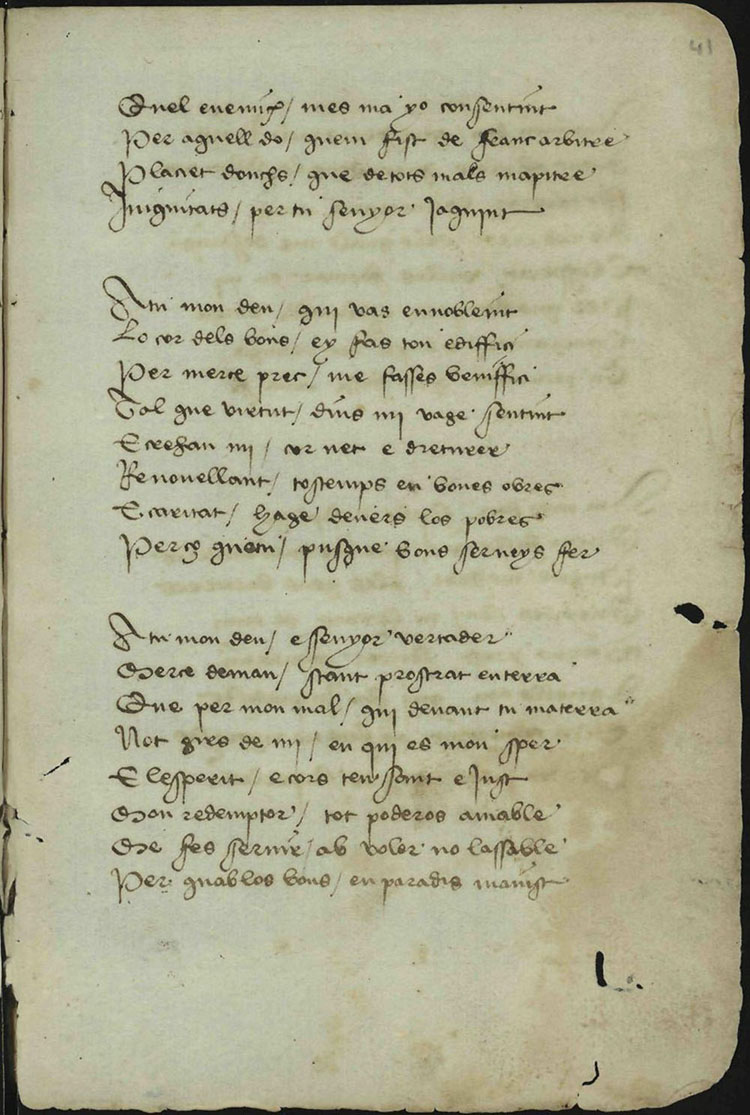 41
Quel enemich / mes ma yo consentint
Per aquell do / quem fist de franc arbitre
Placiet donchs / que detots mals mapitre
Iniquitats / per tu senyor Jaquint
Atu mon deu / qui vas ennobleint
Lo cor dels bons / ey fas ton ediffici
Per merce prec / me fasses beniffici
Tal que virtut / dins mi vage sentint
E crehan mi / cor net e dreturer
Renouellant / tostemps en bones obres
E caritat / hage deuers los pobres
Per quetu / pusque bons serueys fer
Atu mon deu / e senyor vertader
Merce deman / stant prostrat enterra
Que per mon mal / qui deuant tu materra
Not gires de mi / en qui es mon sper
E lesperit / e cors ten sant e Just
Mon redemptor / tot poderos amable
Me fes seruir / ab voler no lassable
Per quablos bons / en paradis